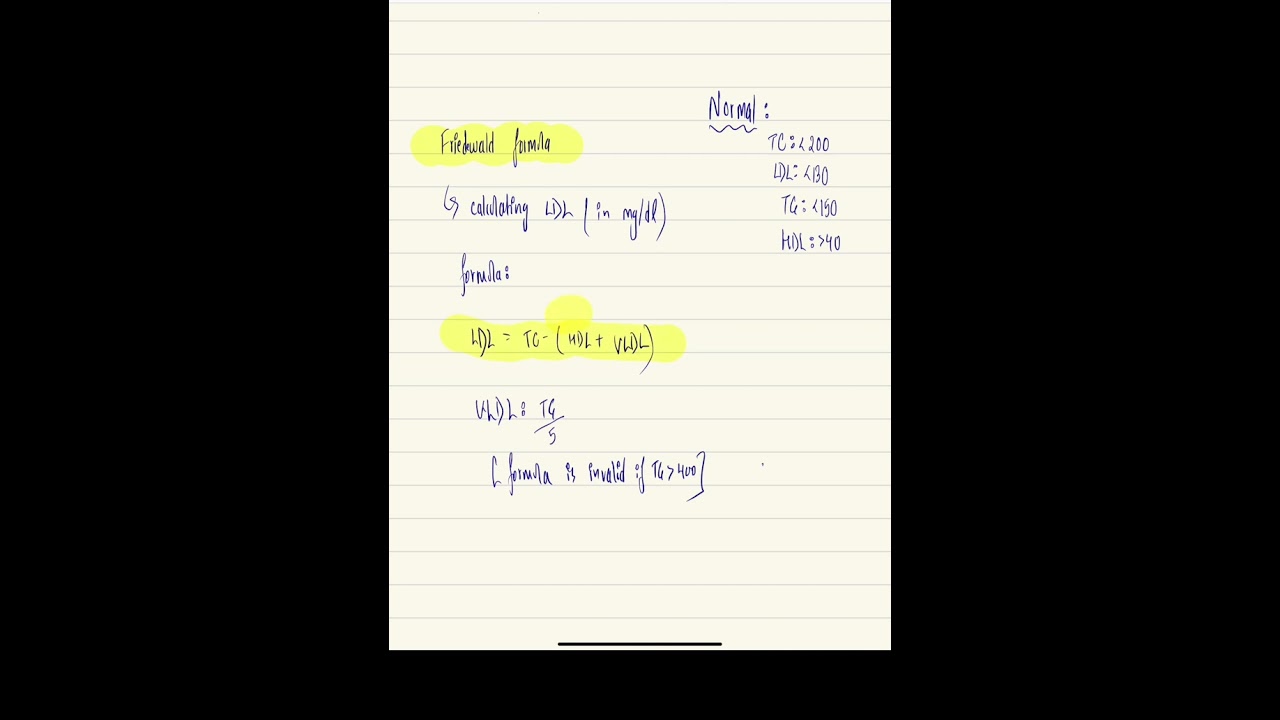 Normal:
TC: <200
LDL: <130
TG: <150
HDL: >40
Friedewald formula
↳ calculating LDL (in mg/dl)
formula:
LDL = TC - (HDL + VLDL)
VLDL: TG/5
[formula is invalid if TG > 400]